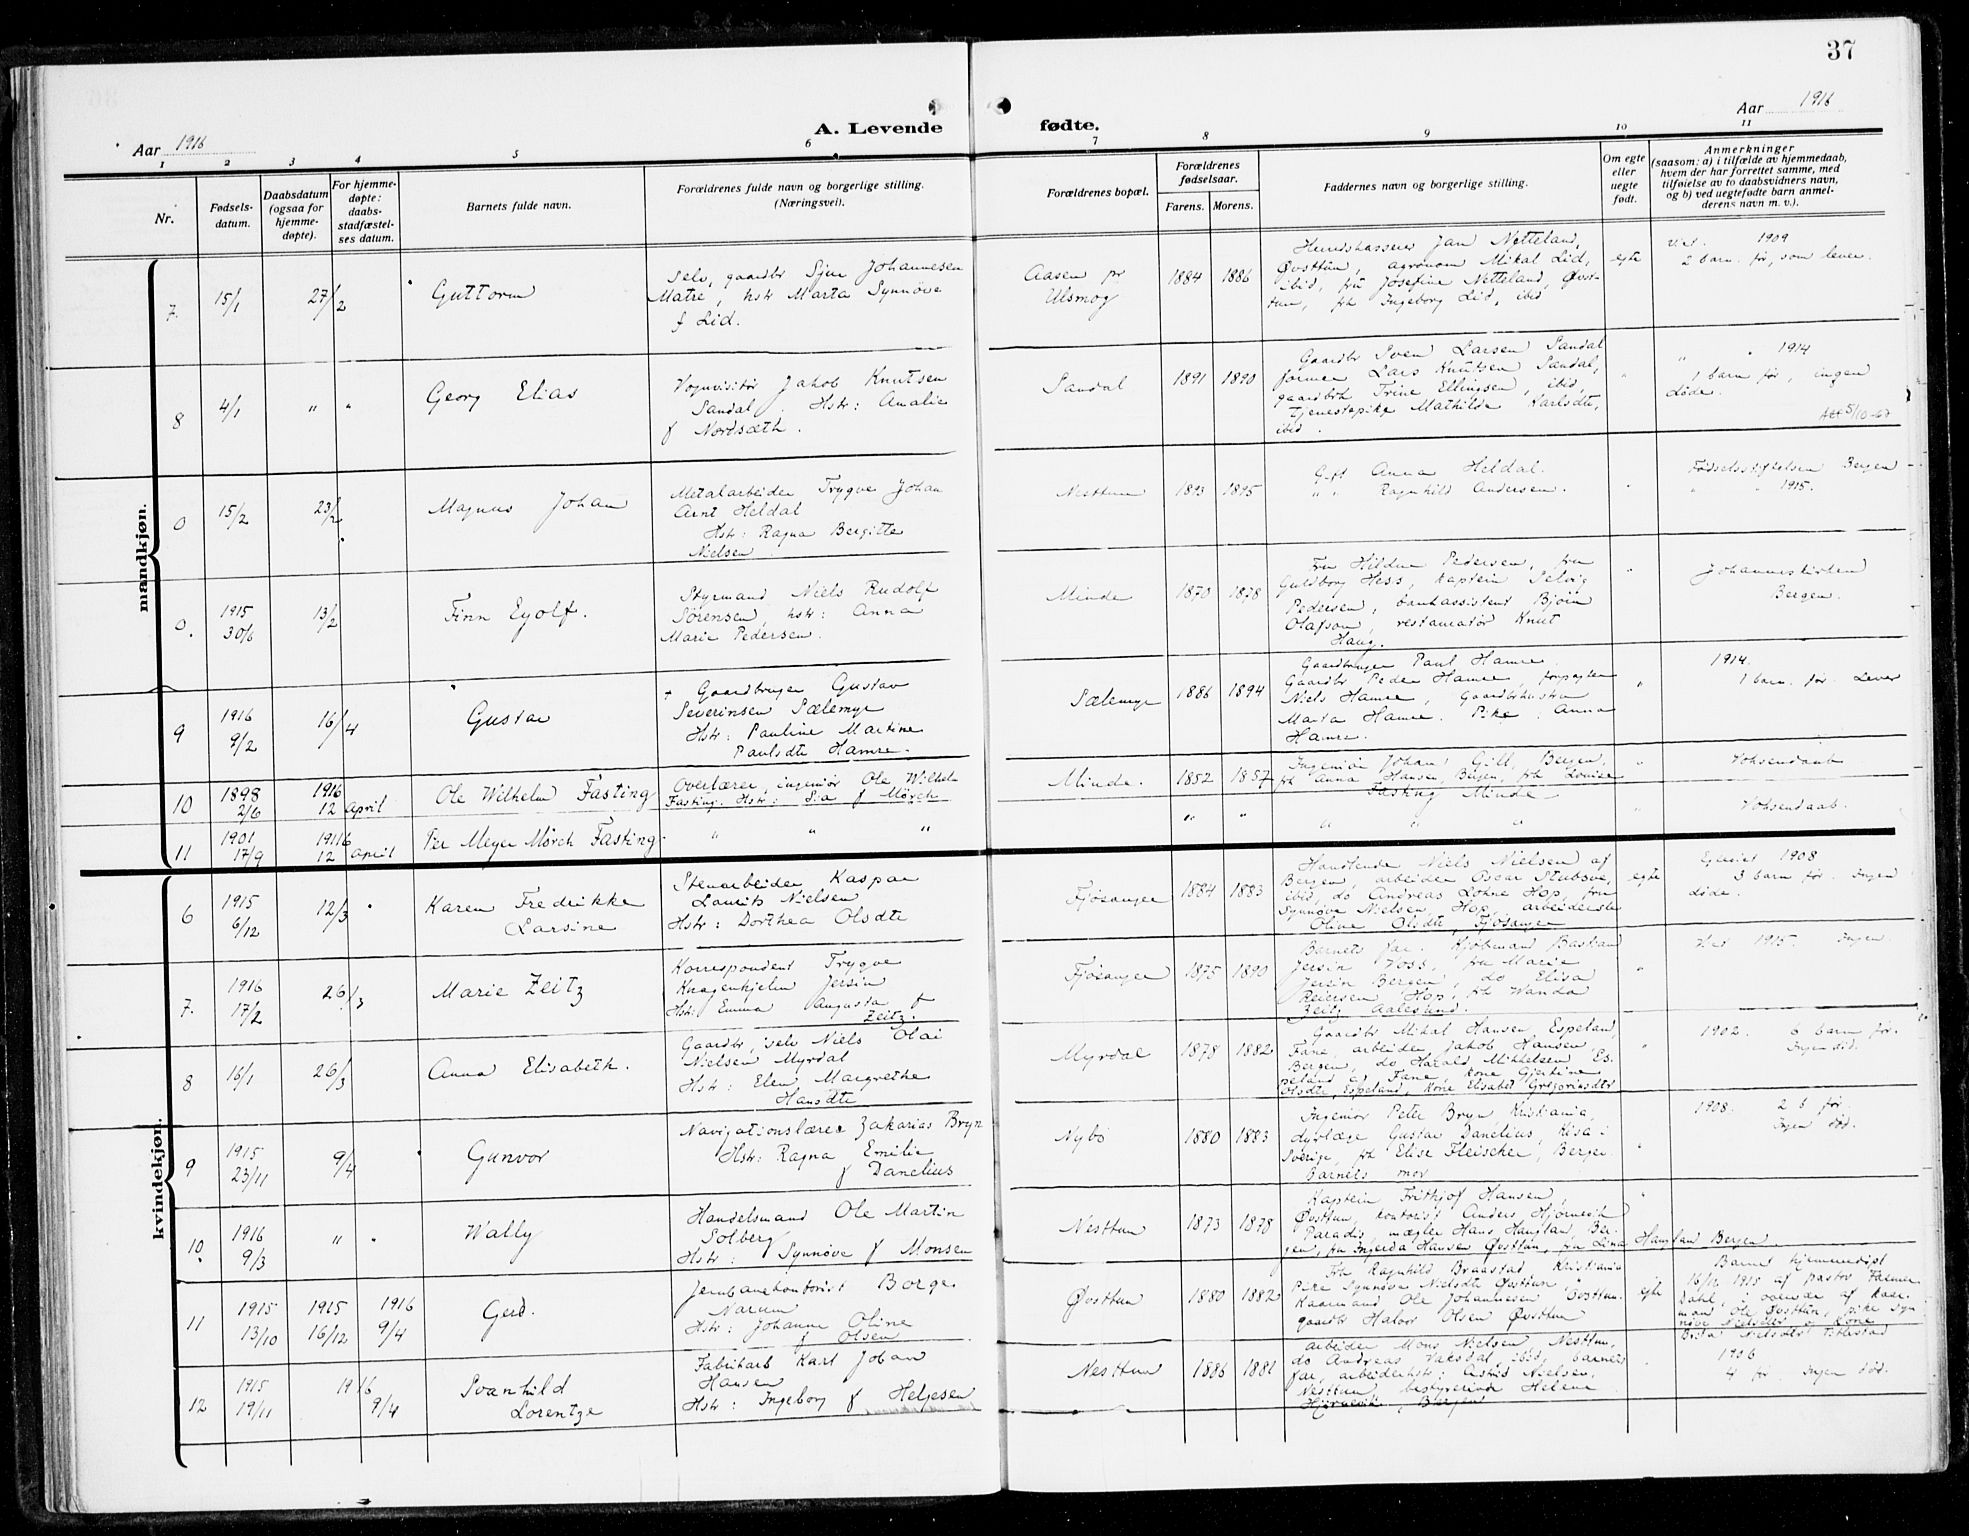 37
Aar 1916
A. Levende fødte.
Aar 1916
1 2 3 4 5 6 7 8 9 10 11
Nr.
Fødsels-
datum.
Daabsdatum
(ogsaa for
hjemme-
døpte).
For hjemme-
døpte:
daabs-
stadfæstel-
ses datum.
Barnets fulde navn.
Forældrenes fulde navn og borgerlige stilling.
(Næringsvei).
Forældrenes bopæl.
Forældrenes
fødselsaar.
Farens. Morens.
Faddernes navn og borgerlige stilling.
Om egte
eller
uegte
født.
Anmerkninger
(saasom: a) i tilfælde av hjemmedaab,
hvem der har forrettet samme, med
tilføielse av to daabsvidners navn,
og b) ved uegtefødte barn anmel-
derens navn m. v.).
mandkjøn.
7. 15/1 27/2
Guttorm
Selv, gaardbr Sjur Johannesen
Matre, hstr Marta Synnøve
f Lid.
Aasen pr
Ulsmog
1884 1886
Herredskasserer Jan Netteland,
Øvsttun, agronom Mikal Lid,
ibid, fru Josefine Netteland, Øvst-
tun, frk Ingeborg Lid, ibid
egte
Viet. 1909
2 barn før, som lever.
8 4/1 " "
Georg Elias
Vognvisitør Jakob Knutsen
Sandal. Hstr: Amalie
f Nordsæth.
Sandal
1891 1890
Gaardbr Sven Larsen Sandal
former Lars Knutsen Sandal,
gaardbrh Trine Ellingsen, ibid,
tjenestepike Mathilde Karlsdtr,
ibid.
"
" " 1914
1 barn før, ingen
døde.
Att 5/10-67
0 15/2 23/2
Magnus Johan
Metalarbeider Trygve Johan
Arnt Heldal
Hstr: Ragna Bergitte
Nielsen
Nesttun
1893 1895
Gift Anna Heldal.
" " Ragnhild Andersen.
"
Fødselsstiftelsen Bergen
" " 1915.
0. 1915
30/6 13/2
Finn Eyolf.
Styrmand Niels Rudolf
Sørensen, hstr: Anna
Marie Pedersen.
Minde
1870 1878
Fru Hildur Pedersen, fru
Guldborg Hess, kaptein Selvig
Pedersen, bankassistent Bjørn
Olafson, restauratør Knut
Haug.
"
Johanneskirken
Bergen.
9 1916
9/2 16/4
Gustav
+ Gaardbruger Gustav
Severinsen Sælemyr
Hstr: Pauline Martine
Paulsdtr Hamre.
Sælemyr
1886 1894
Gaardbruger Paul Hamre.
Gaardbr Peder Hamre, forpagter
Niels Hamre, Gaardbrhustru
Marta Hamre. Pike: Anna
Hamre.
"
1914.
1 barn før. Lever
10 1898
2/6 1916
12 april
Ole Wilhelm Fasting
Overlærer, ingeniør Ole Wilhel
Fasting. Hstr: Sia f Mørch
Minde.
1852 1857
Ingeniør Johan Gill, Bergen,
frk Anna Hansen, Bergen, frk Louise
Fasting Minde
"
Voksendaab
11 1901
17/9 1916
12 april
Per Meyer Mørch Fasting
" " "
" "
" " "
"
Voksendaab.
kvindekjøn.
6 1915
6/12 12/3 "
Karen Fredrikke
Larsine
Stenarbeider Kaspar
Lauritz Nielsen
Hstr: Dorthea Olsdtr
Fjøsanger
1884 1883
Handlende Niels Nielsen af
Bergen, arbeider Oscar Stubsve,
ibid, do Andreas Lohne Hop, fru
Synnøve Nielsen Hop, arbeiderske
Oline Olsdtr, Fjøsanger
egte
Egteviet 1908
3 barn før. Ingen
døde.
7. 1916
17/2 26/3
Marie Zeitz
Korrespondent Trygve
Knagenhjelm Jersin
Hstr: Emma Augusta f
Zeitz.
Fjøsanger
1875 1890
Barnets far. Kjøbmand Bastian
Jersin Voss, fru Marie
Jersin Bergen, do Elisa
Reiersen Hop, frk Wanda
Zeitz Aalesund.
"
Viet 1915. Ingen
8 16/1 26/3
Anna Elisabeth.
Gaardbr, selv Niels Olai
Nielsen Myrdal
Hstr: Elen Margrethe
Hansdtr
Myrdal
1878 1882
Gaardbr Mikal Hansen, Espeland,
Fane, arbeider Jakob Hansen,
Bergen, do Harald Mikkelsen Es-
peland af Fane, kone Gjertine
Olsdtr, Espeland, Kone Elisabet Gregoriusdtr
"
1902. 6 barn før.
Ingen død.
9 1915
23/11 9/4
Gunvor
Navigationslærer Zakarias Bryn
Hstr: Ragna Emilie
f Danelius
Nybø
1880 1883
Ingeniør Peter Bryn Kristiania,
dyrlæge Gustav Danelius, Kisa i
Sverige, frk Elise Fleischer, Bergen.
Barnets mor
"
1908. 2 b før.
Ingen død.
10. 1916
9/3 " "
Wally
Handelsmand Ole Martin
Solberg
Hstr: Synnøve f Monsen
Nesttun
1873 1878
Kaptein Frithjof Hansen,
Øvsttun, kontorist Anders Hjørnevik
Paradis, mægler Hans Haugtan, Ber-
gen, fru Ingerda Hansen Øvsttun, fru Lina Haugtan Bergen
"
11 1915
13/10 1915
16/12 1916
9/4
Gerd.
Jernbanekontorist Borge
Narum
Hstr: Johanne Oline
f Olsen
Øvsttun
1880 1882
Frk Ragnhild Braastad Kristiania
Pike Synnøve Nielsdtr Øvsttun,
Kaarmand Ole Johannesen Øvsttun.
gaardbr Halvor Olsen Øvsttun
egte
Barnet hjemmedøpt
16/12 1915 af pastor Fasmer
Dahl, i overvær af kaar-
mand Ole Øvsttun, pike Syn
nøve Nielsdtr og kone
Brita Nielsdtr Titlestad
12 1915
19/11 1916
9/4
Svanhild
Lorentze
Fabrikarb Karl Johan
Hansen
Hstr: Ingeborg f Helgesen
Nesttun
1886 1881
arbeider Mons Nielsen, Nesttun,
do Andreas Vaksdal, ibid, barnets
far, arbeiderhstr: Astrid Nielsen,
Nesttun, bestyrerinde Helene
Hjørnevik, Bergen
"
1906
4 før. Ingen død.